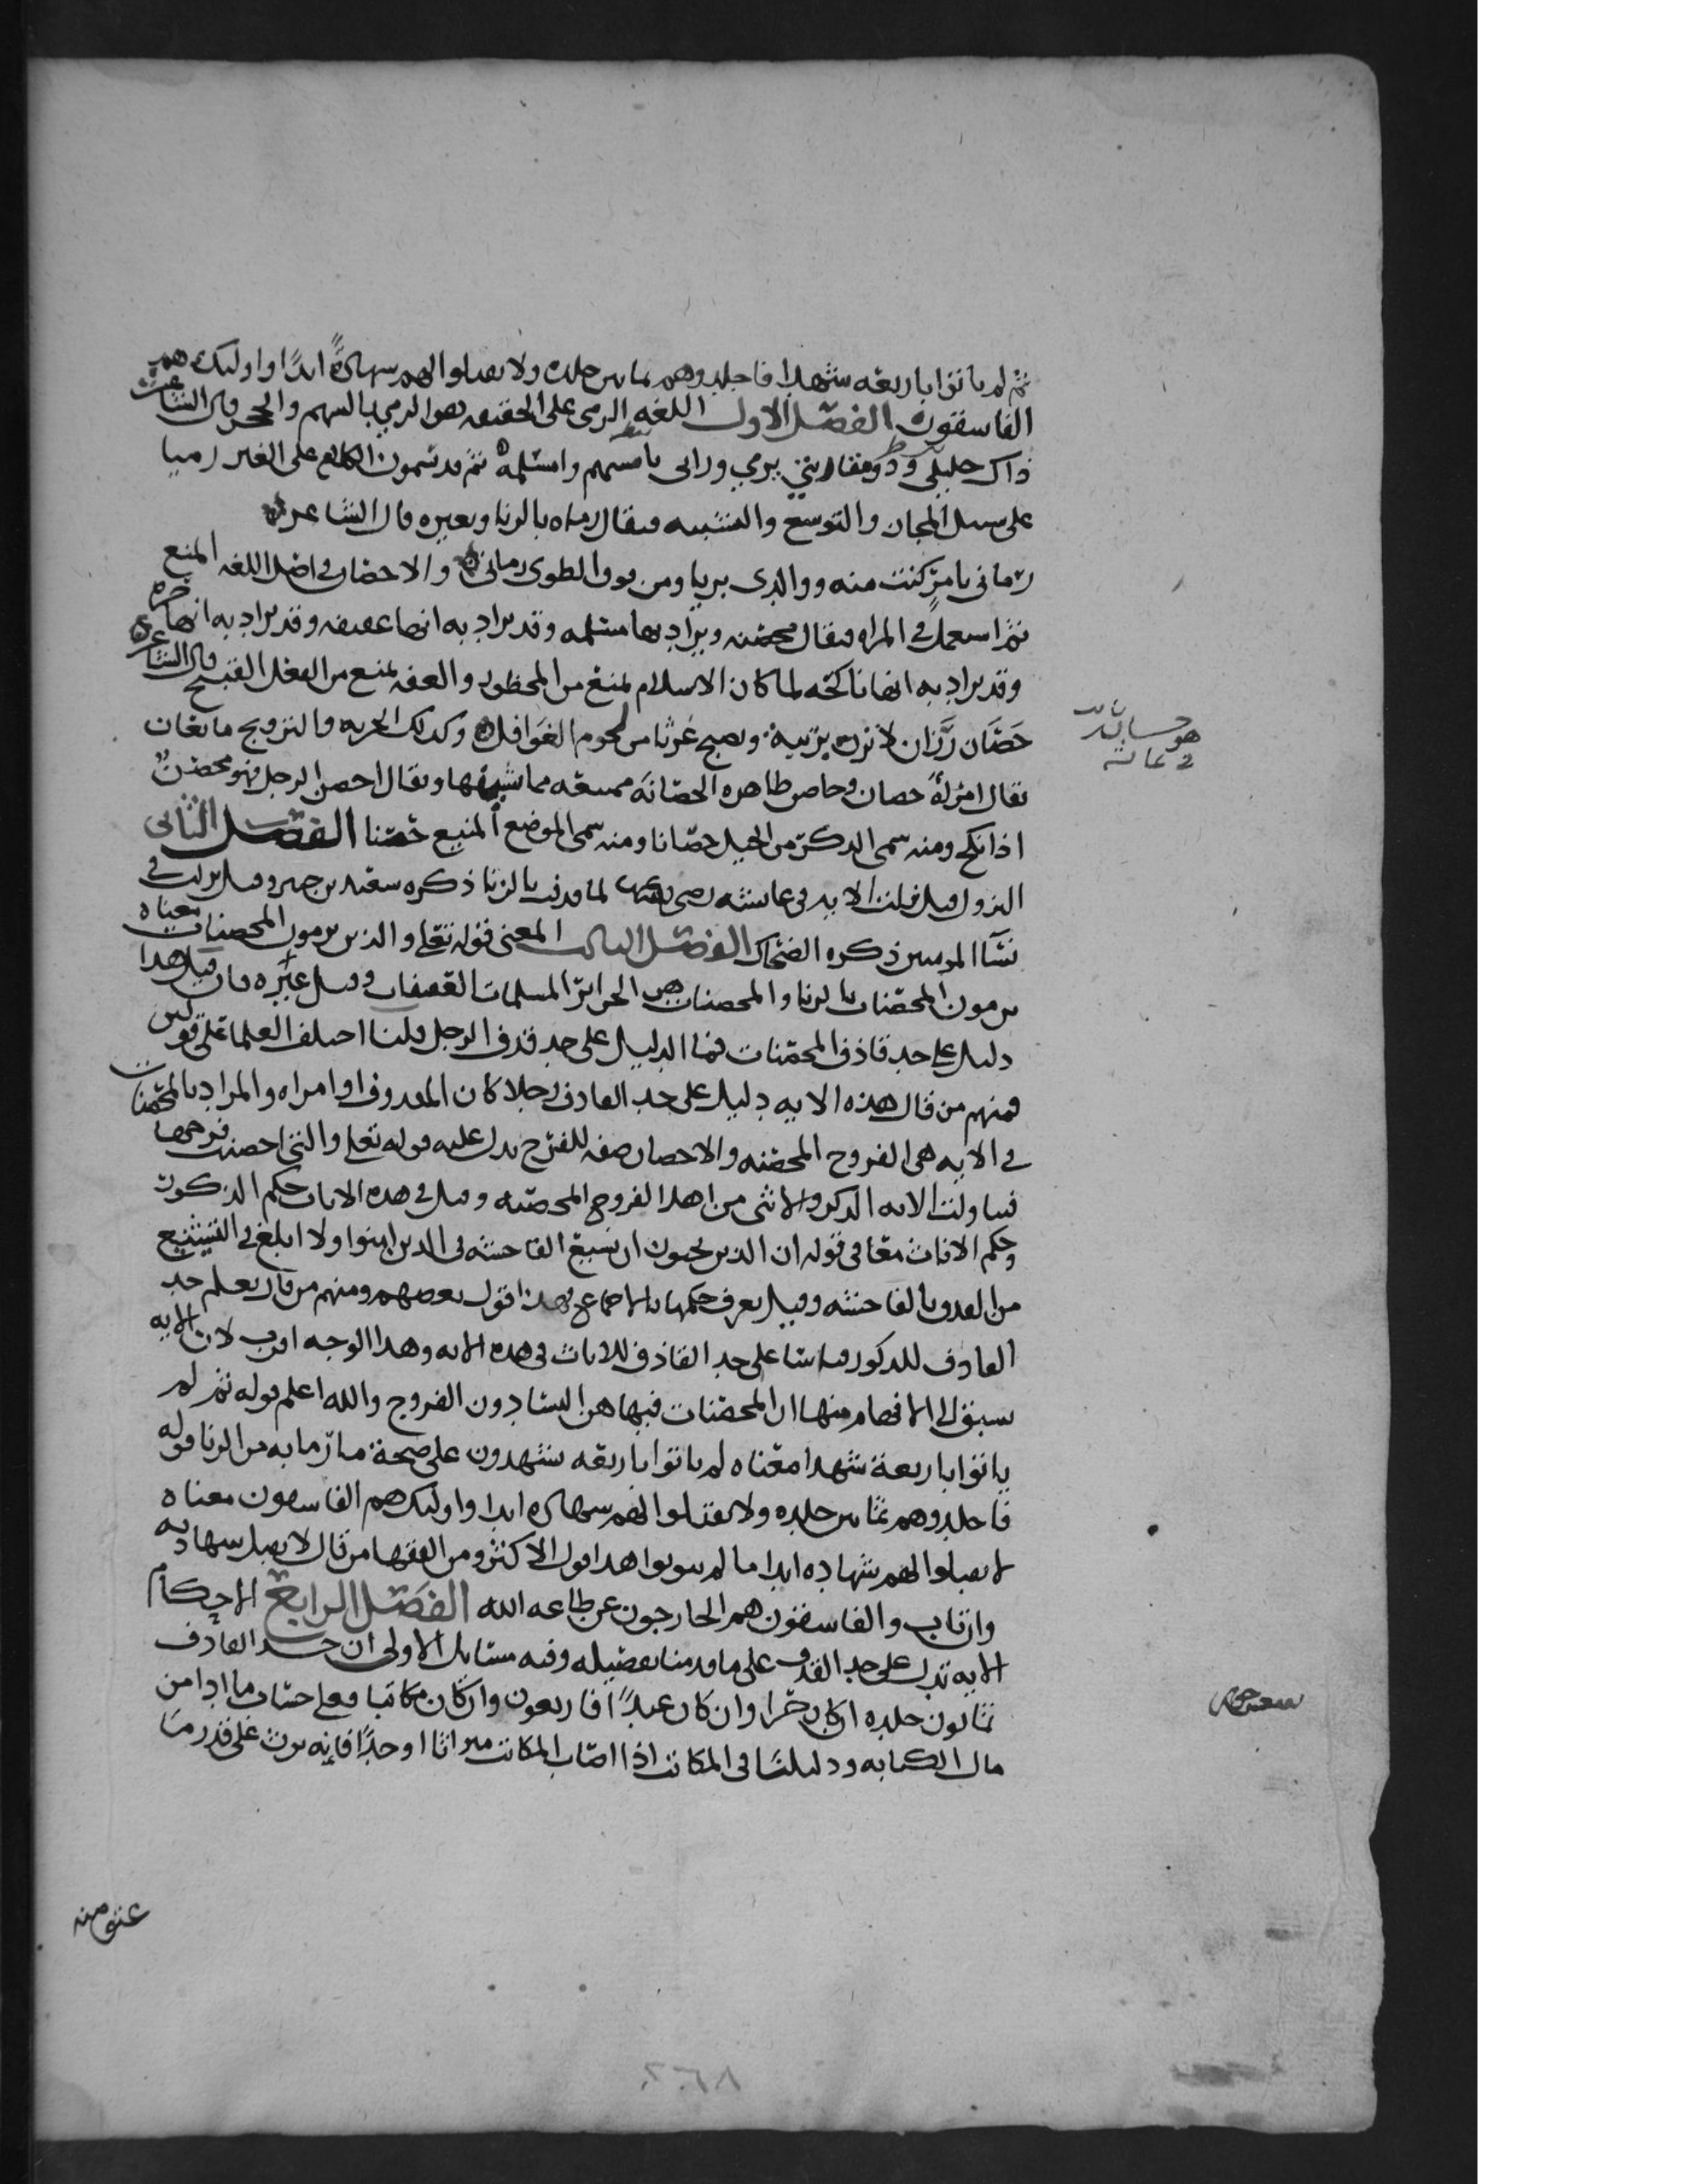 ثم لم ياتوا باربعه شهدا فاجلدوهم ثمانين جلده ولا تقبلوا لهم شهادةً ابدًا واوليك هم
الفاسقون الفصل الاول اللغه الرمي على الحقيقه هو الرمي بالسهم والحجر قال الشاعر
ذاك خليلي وذو يرمي وراي بامسهم وامسلمه ثم قد يسمون الكلام على الغير رميا
على سبيل المجاز والتوسع والتشبيه فيقال رماه بالزنا وبعيره قال الشاعر
رماني بامر كنت منه ووالدي بريا ومن فوق الطوى رماني والاحصان في اصل اللغه المنع
ثم استعمل في المراه فيقال محصنه ويراد بها مسلمه وقد يراد به انها عفيفه وقد يراد به انها حره
وقد يراد به انها ناكحه لما كان الاسلام يمنع من المحظور والعفه تمنع من الفعل القبيح قال الشاعر
حَصَان رَزان لا تزن بريبة وتصبح غرثا من لحوم الغوافل وكذلك الحريه والتزويج مانعان
يقال امراة حصان وحاصن طاهره الحصانه ممتنعه مما يشينها ويقال احصن الرجل فهو محصن
اذا نكح ومنه سمي الذكر من الخيل حصانا ومنه سمي الموضع المنيع حصنا الفصل الثاني
النزول قيل نزلت الايه في عايشه رضي الله عنها لما قذفت بالزنا ذكره سعيد بن جبير وقيل نزلت في
نسآ المومنين ذكره الضحاك الفصل الثالث المعنى قوله تعلى والذين يرمون المحصنات معناه
يرمون المحصنات بالزنا والمحصنات هن الحراير المسلمات العفيفات وقيل غيره فان قيل هذا
دليل على حد قاذف المحصنات فما الدليل على حد قذف الرجل قلنا اختلف العلما على قولين
فمنهم من قال هذه الايه دليل على حد القاذف رجلا كان المقذوف او امراه والمراد بالمحصنات
في الايه هي الفروج المحصنه والاحصان صفه للفرج يدل عليه قوله تعلى والتي احصنت فرجها
فتناولت الايه الذكر والانثى من اهل الفروج المحصنه وقيل في هذه الايات حكم الذكور
وحكم الاناث معا في قوله ان الذين يحبون ان تشيع الفاحشه في الذين امنوا ولا ابلغ في التشنيع
من القذف بالفاحشه وقيل يعرف حكمها بالاجماع فهذا قول بعضهم ومنهم من قال يعلم حد
القاذف للذكور قياسا على حد القاذف للاناث في هذه الايه وهذا الوجه اقرب لان الايه
يسبق الى الافهام منها ان المحصنات فيها هن النسا دون الفروج والله اعلم قوله ثم لم
ياتوا باربعة شهدا معناه لم ياتوا باربعه يشهدون على صحة ما رما به من الزنا قوله
فاجلدوهم ثمانين جلده ولا تقبلوا لهم شهاده ابدا واوليك هم الفاسقون معناه
لا تقبلوا لهم شهاده ابدا ما لم يتوبوا هذا قول الاكثر ومن الفقها من قال لا تقبل شهادته
وان تاب والفاسقون هم الخارجون عن طاعه الله الفصل الرابع الاحكام
الايه تدل على حد القذف على ما قدمنا تفصيله وفيه مسايل الاولى ان حد القاذف
ثمانون جلده ان كان حرا وان كان عبدًا فاربعون وان كان مكاتبا فعلى حساب ما ادا من
مال الكتابه ودليلنا في المكاتب اذا اصاب المكاتب ميراثا او حدًا فإنه يرث على قدر ما
هو حسان بن ثابت
في عايشه
عتق منه
٢٦٨